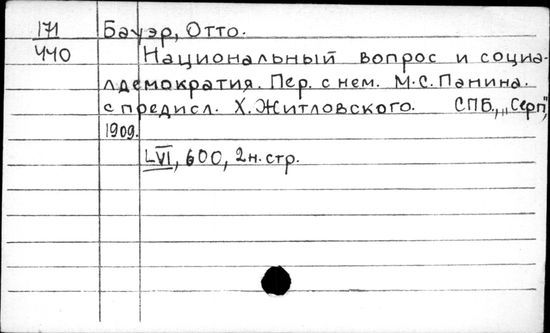 171 Бауэр, Отто.
440 Национальный вопрос и социа-
лдемократия. Пер. с нем. М.С. Панина.
с предисл. Х. Житловского. СПБ., „Серп",
1909.
LVI, 600, 2 н. стр.